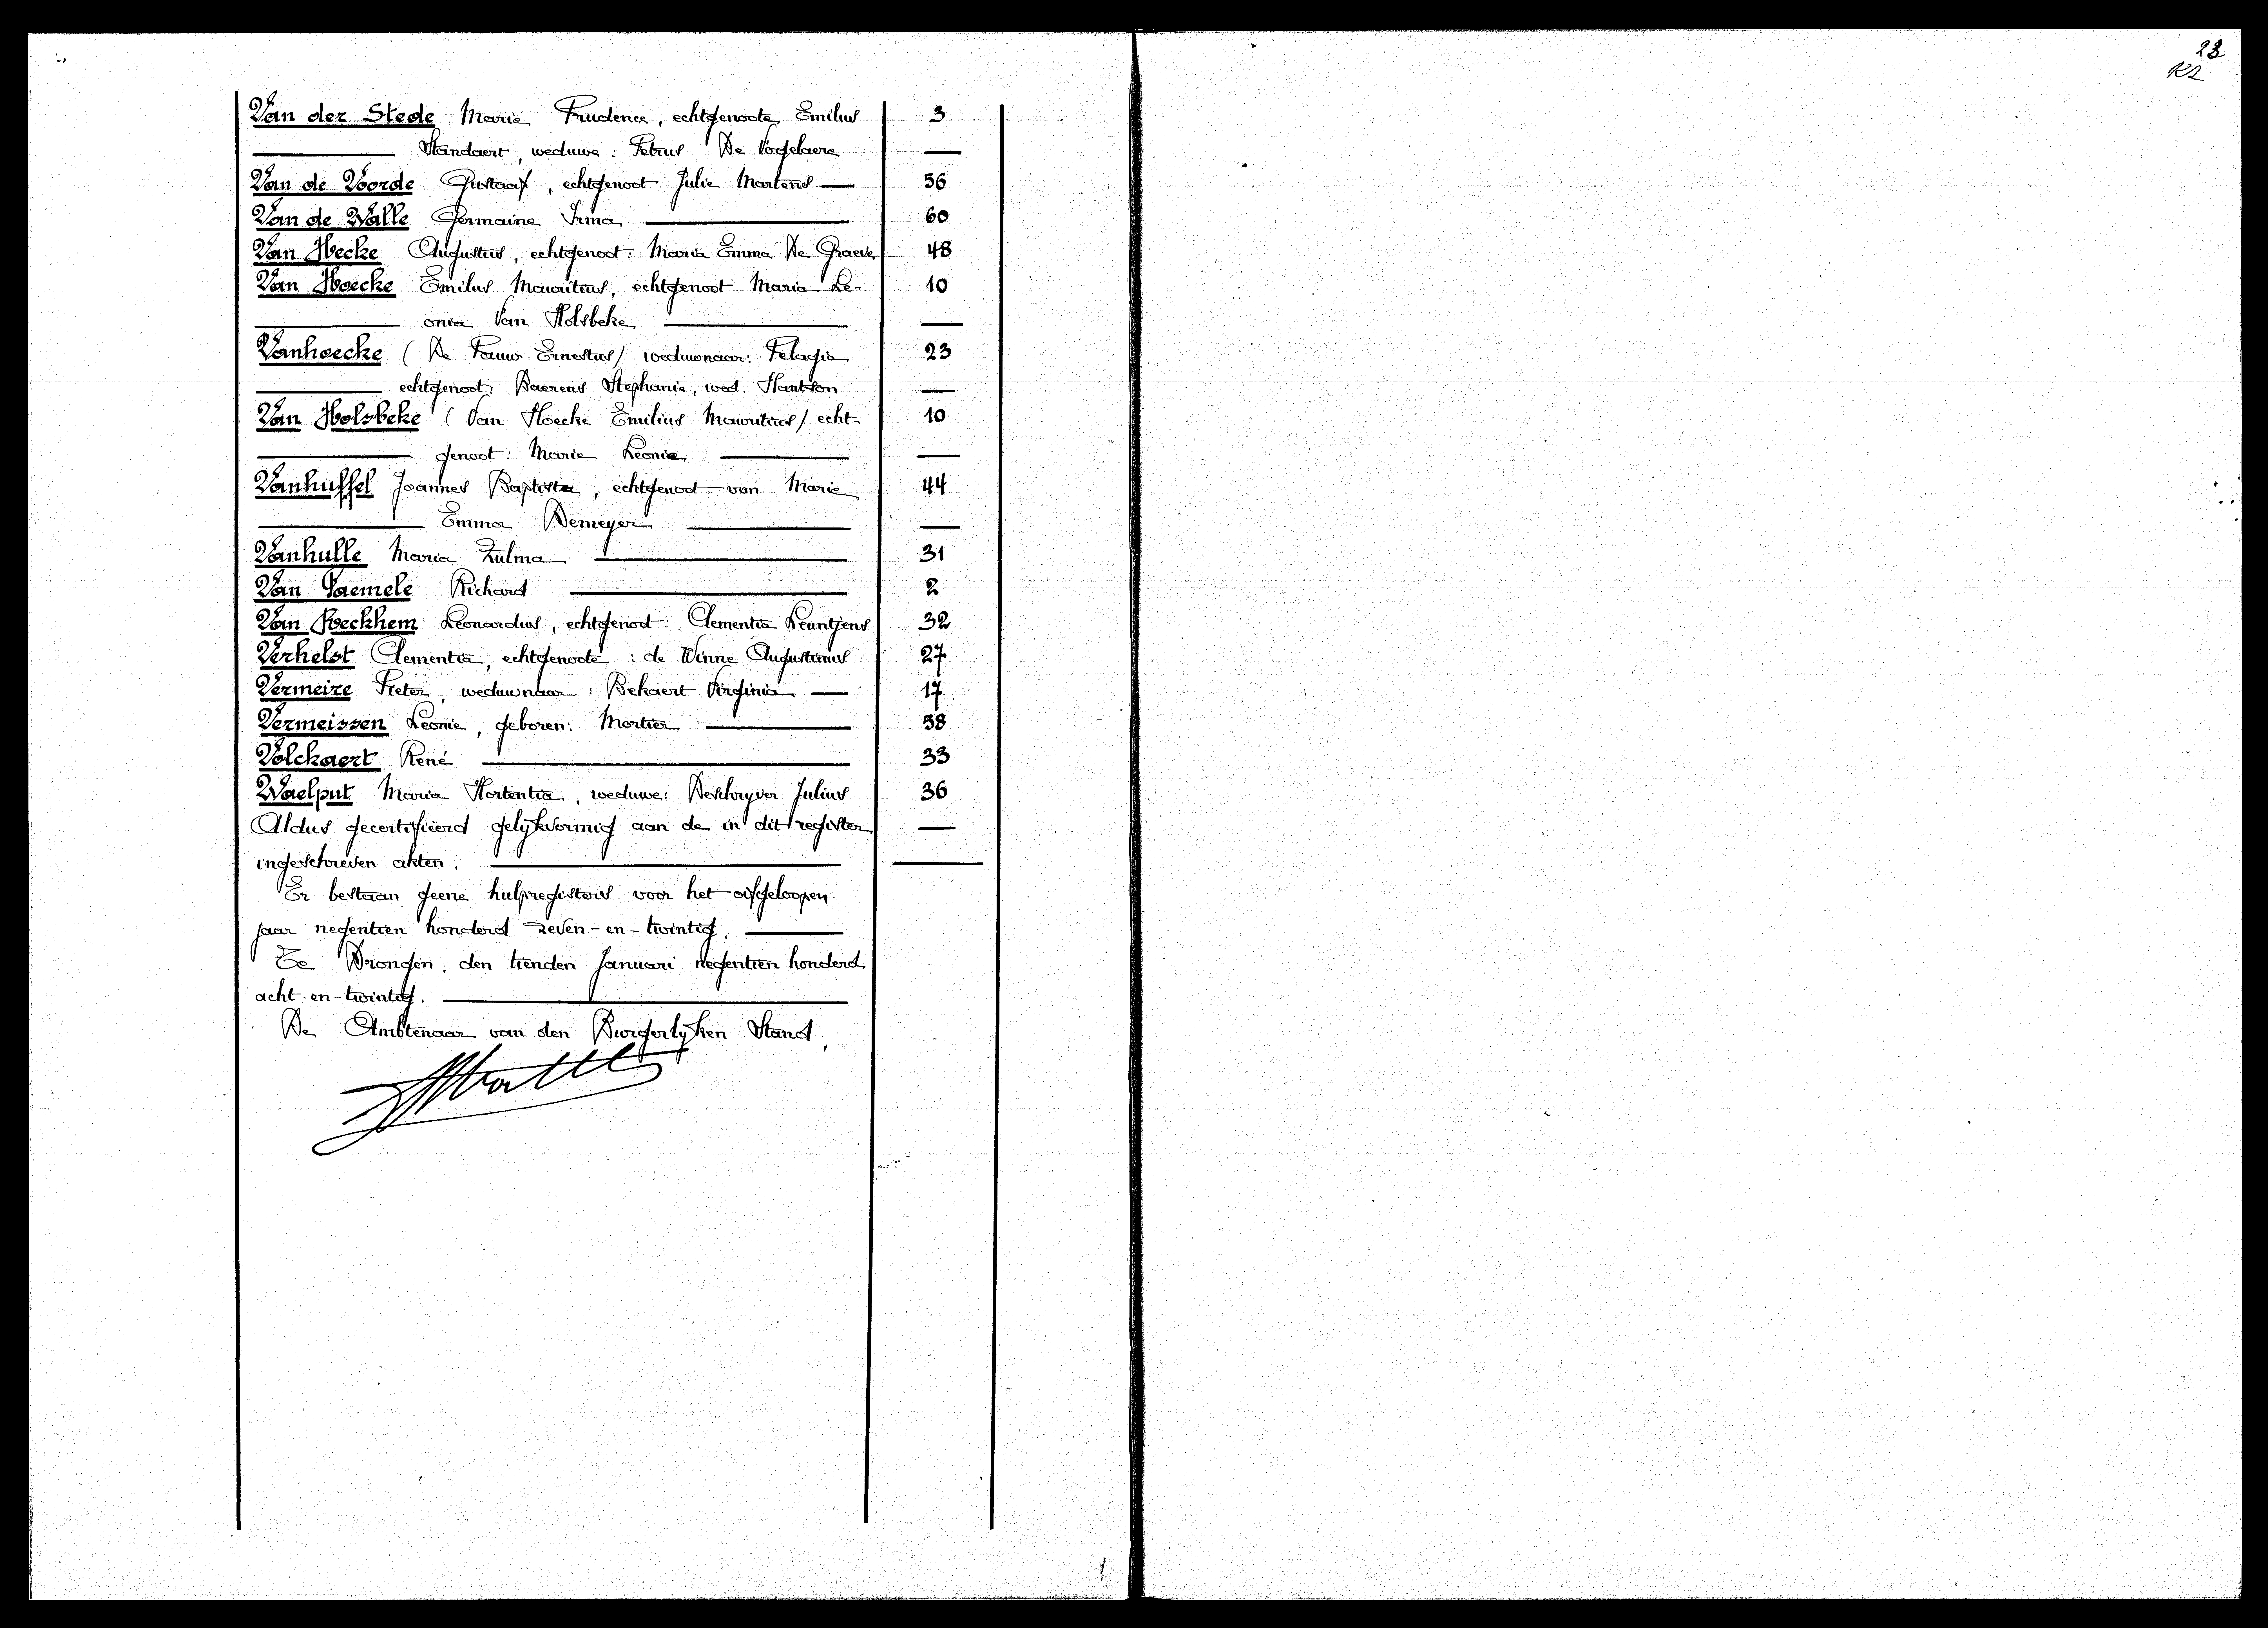 23
K2
Van der Stede Marie Prudence, echtgenoote Emilius 3
Standaert, weduwe: Petrus De Vogelaere —
Van de Voorde Gustaaf, echtgenoot Julie Martens — 56
Van de Walle Germaine Irma — 60
Van Hecke Augustus, echtgenoot: Maria Emma De Graeve 48
Van Hoecke Emilus Mauritius, echtgenoot Maria Le- 10
onia Van Holsbeke — —
Vanhoecke (De Pauw Ernestus) weduwnaar: Pelagia 23
echtgenoot: Baerens Stephanie, wed. Hantson —
Van Holsbeke (Van Hoecke Emilius Mauritius) echt- 10
genoot: Marie Leonie — —
Vanhuffel Joannes Baptista, echtgenoot van Marie 44
Emma Demeyer — —
Vanhulle Maria Zulma — 31
Van Paemele Richard — 2
Van Reckhem Leonardus, echtgenoot: Clementia Leuntjens 32
Verhelst Clementia, echtgenoote: de Winne Augustinus 27
Vermeire Pieter, weduwnaar: Bekaert Virginia — 17
Vermeissen Leonie, geboren: Mortier — 58
Volckaert René — 33
Waelput Maria Hortentia, weduwe: Deschryver Julius 36
Aldus gecertifiëerd gelijkvormig aan de in dit register —
ingeschreven akten. — —
Er bestaan geene hulpregisters voor het afgeloopen
jaar negentien honderd zeven-en-twintig. —
Te Drongen, den tienden Januari negentien honderd
acht-en-twintig. —
De Ambtenaar van den Burgerlijken Stand,